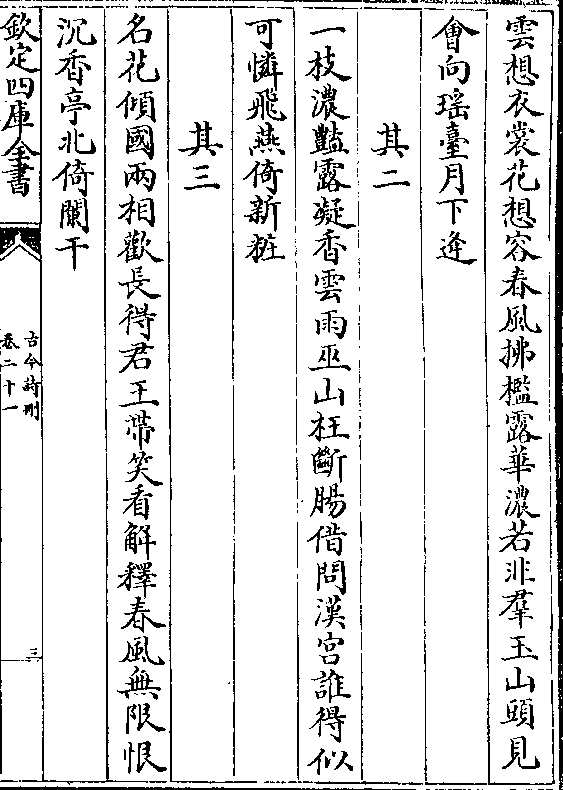 雲想衣裳花想容春風拂檻露華濃若非羣玉山頭見
會向瑶臺月下逄
其二
一枝濃豔露凝香雲雨巫山枉斷腸借問漢宮誰得似
可憐飛燕倚新粧
其三
名花傾國兩相歡長得君王帶笑看解釋春風無限恨
沉香亭北倚闌干
欽定四庫全書
古今詩刪
卷二十一
三